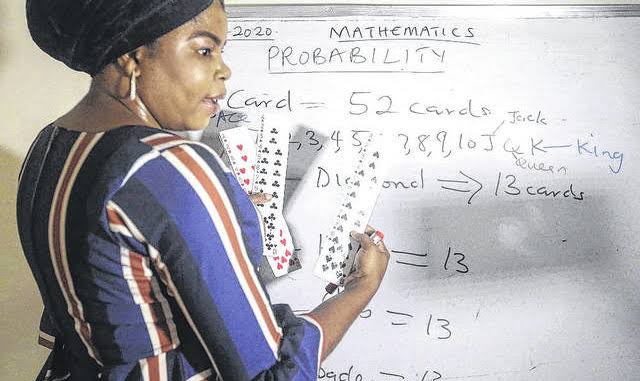 2020. MATHEMATICS
PROBABILITY
Card = 52 cards
ACE Jack
2, 3, 4, 5 7, 8, 9, 10 J Q K — King
Queen
Diamond ⇒ 13 cards
= 13
= 13
= 13